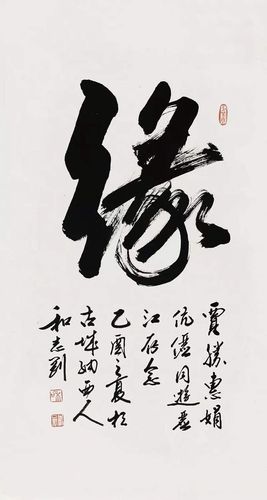 緣
勝惠娟
伉儷同遊麗
江存念
乙酉之夏於
古城納西人
和志剛